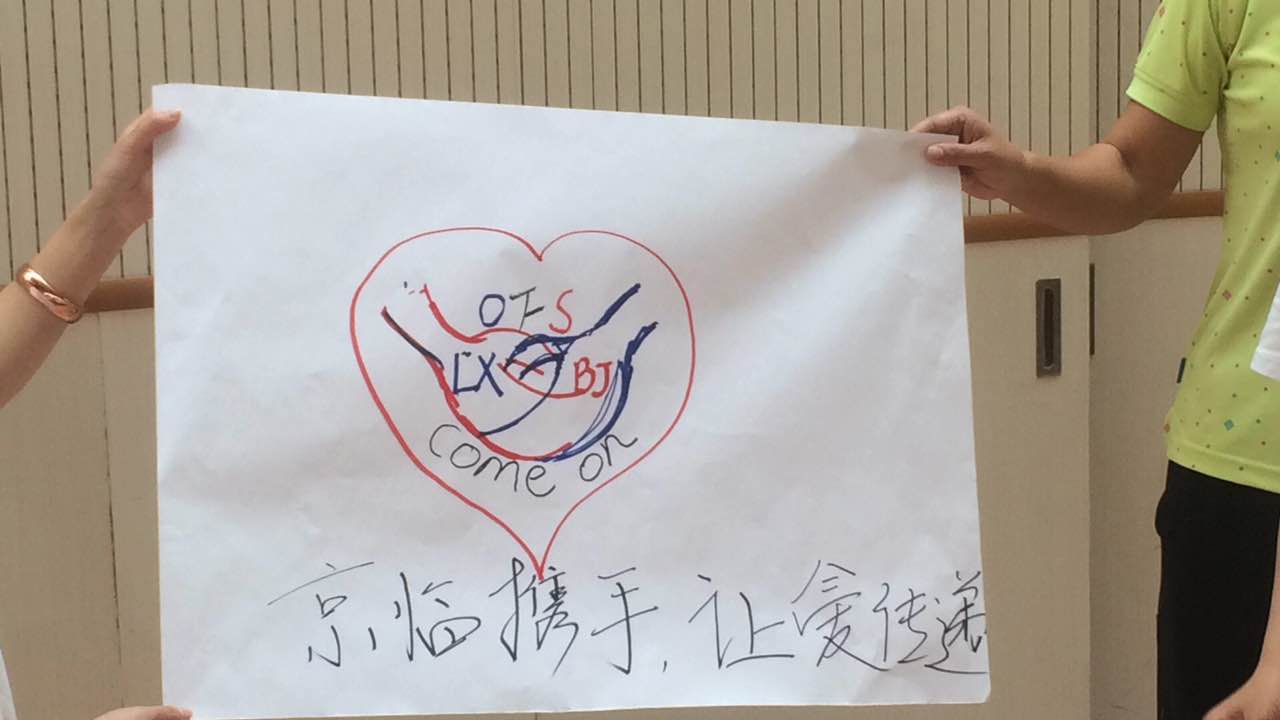 OTS
LX BJ
come on
京临携手,让爱传递